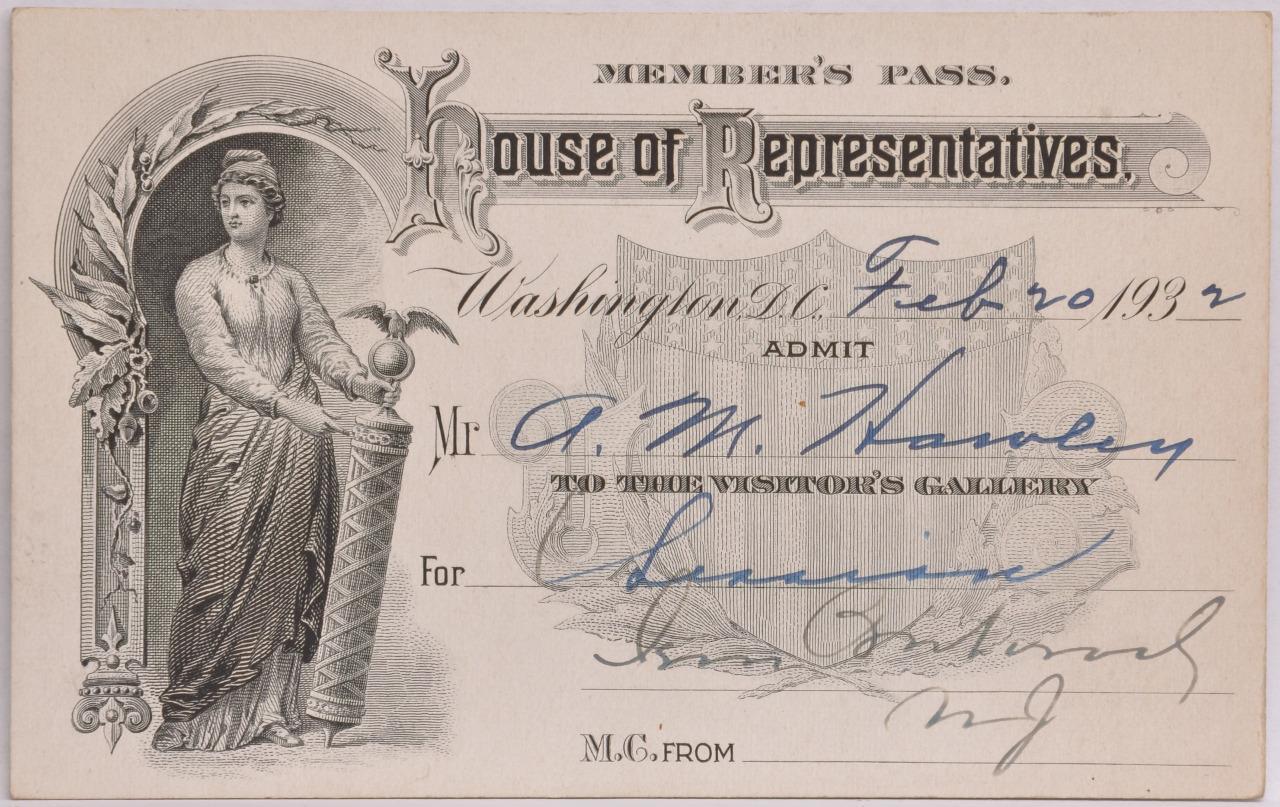 MEMBER'S PASS.
House of Representatives,
Washington, D.C. Feb 20 1932
ADMIT
Mr A. M. Hawley
TO THE VISITOR'S GALLERY
For Session
N J
M.C. FROM